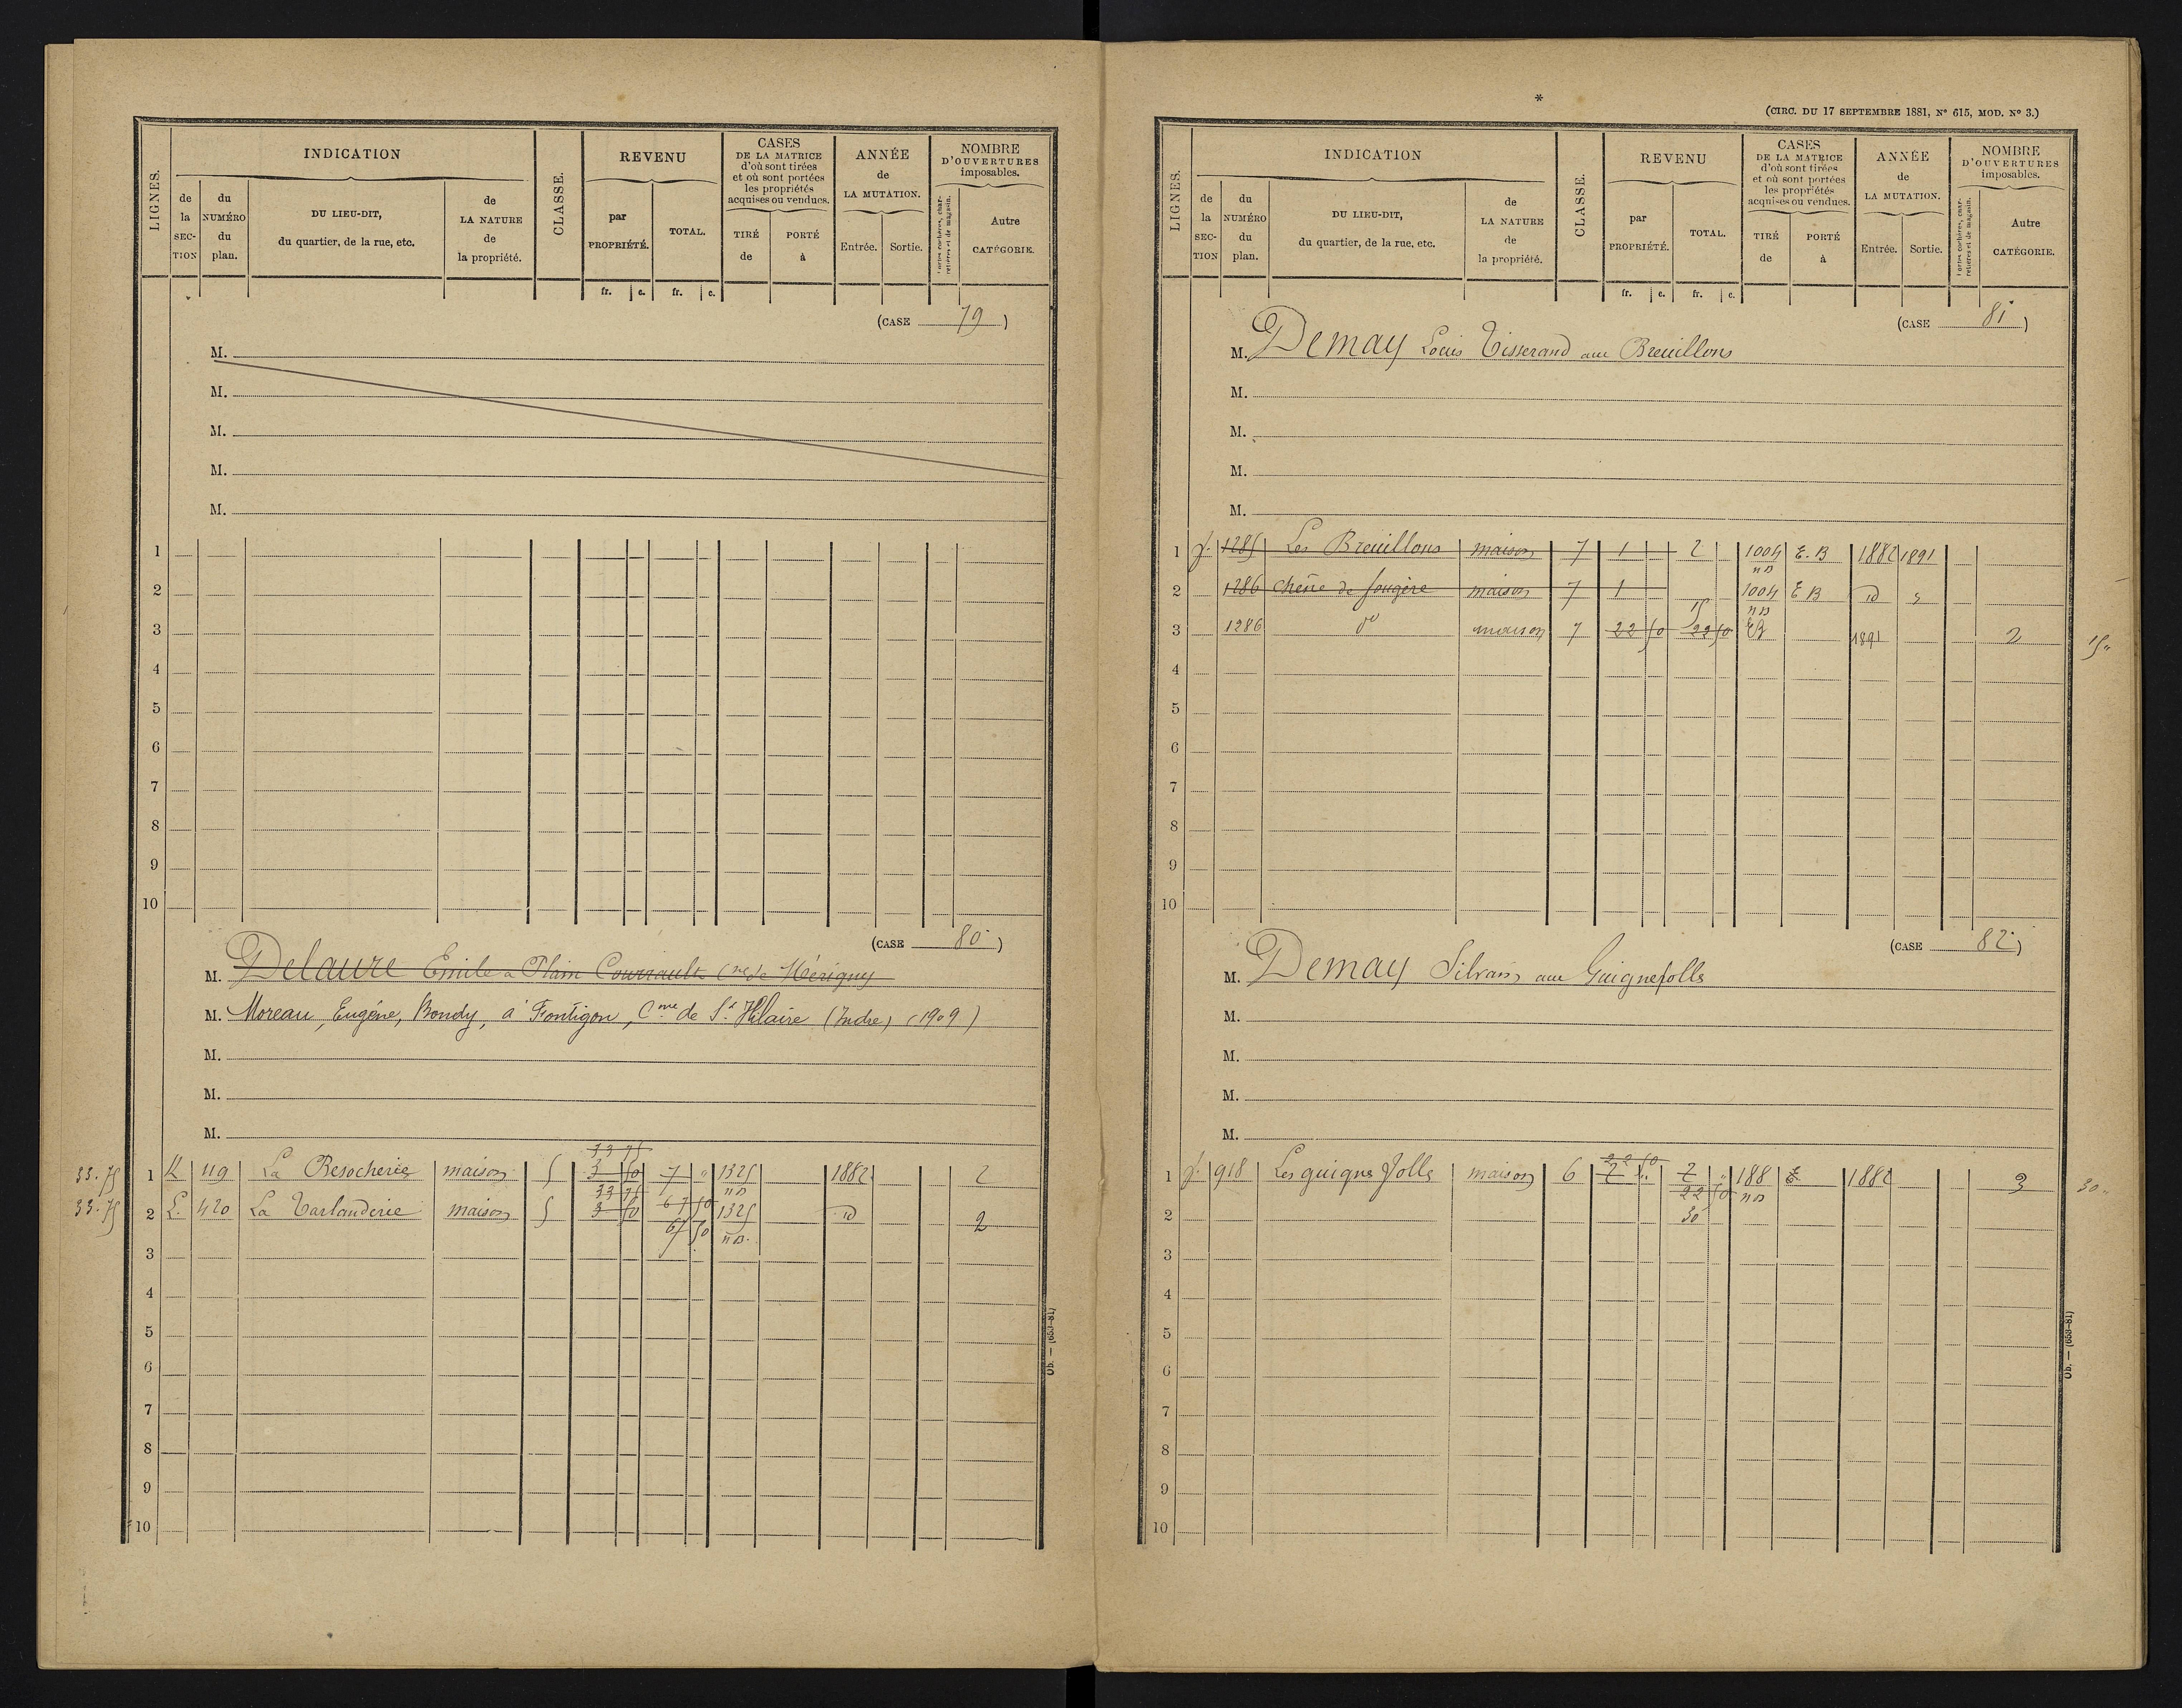 LIGNES.
INDICATION
de la SECTION
du NUMÉRO du plan.
DU LIEU-DIT, du quartier, de la rue, etc.
de LA NATURE de la propriété.
CLASSE.
REVENU
par PROPRIÉTÉ.
TOTAL.
fr. c. fr. c.
CASES DE LA MATRICE d'où sont tirées et où sont portées les propriétés acquises ou vendues.
TIRÉ de
PORTÉ à
ANNÉE de LA MUTATION.
Entrée. Sortie.
NOMBRE D'OUVERTURES imposables.
Portes cochères, charretières et de magasin.
Autre CATÉGORIE.
(CASE 79)
M.
M.
M.
M.
M.
1
2
3
4
5
6
7
8
9
10
(CASE 80)
M. Delaure Emile a Plain Courrault Cne de Mérigny
M. Moreau, Eugène, Bondy, à Fontigon, Cme de St Hilaire (Indre) (1909)
M.
M.
M.
33 75
33.75 1 K 119 La Besocherie maison 5 3 50 7 " 1325 nB 1882 2
33 75 67 50
33.75 2 L. 420 La Tarlauderie maison 5 3 50 1325 nB. id 2
67 50
3
4
5
6
7
8
9
10
Ob. — (653-81)
*
(CIRC. DU 17 SEPTEMBRE 1881, N° 615, MOD. N° 3.)
LIGNES.
INDICATION
de la SECTION
du NUMÉRO du plan.
DU LIEU-DIT, du quartier, de la rue, etc.
de LA NATURE de la propriété.
CLASSE.
REVENU
par PROPRIÉTÉ.
TOTAL.
fr. c. fr. c.
CASES DE LA MATRICE d'où sont tirées et où sont portées les propriétés acquises ou vendues.
TIRÉ de
PORTÉ à
ANNÉE de LA MUTATION.
Entrée. Sortie.
NOMBRE D'OUVERTURES imposables.
Portes cochères, charretières et de magasin.
Autre CATÉGORIE.
(CASE 81)
M. Demay Louis Tisserand aux Breuillons
M.
M.
M.
M.
1 J. 1285 Les Breuillons maison 7 1 2 1004 nB E.B 1882 1891
2 1286 Chêne de fougère maison 7 1 1004 nB E B id
15
3 1286 do maison 7 22 50 22 50 EB 1891 2 15"
4
5
6
7
8
9
10
(CASE 82)
M. Demay Silvain aux Guignefolls
M.
M.
M.
M.
22 50
1 J. 918 Les guignes Folls maison 6 2 " 2 " 188 nB E 1882 3 30"
22 50
2 30
3
4
5
6
7
8
9
10
Ob. — (653-81)